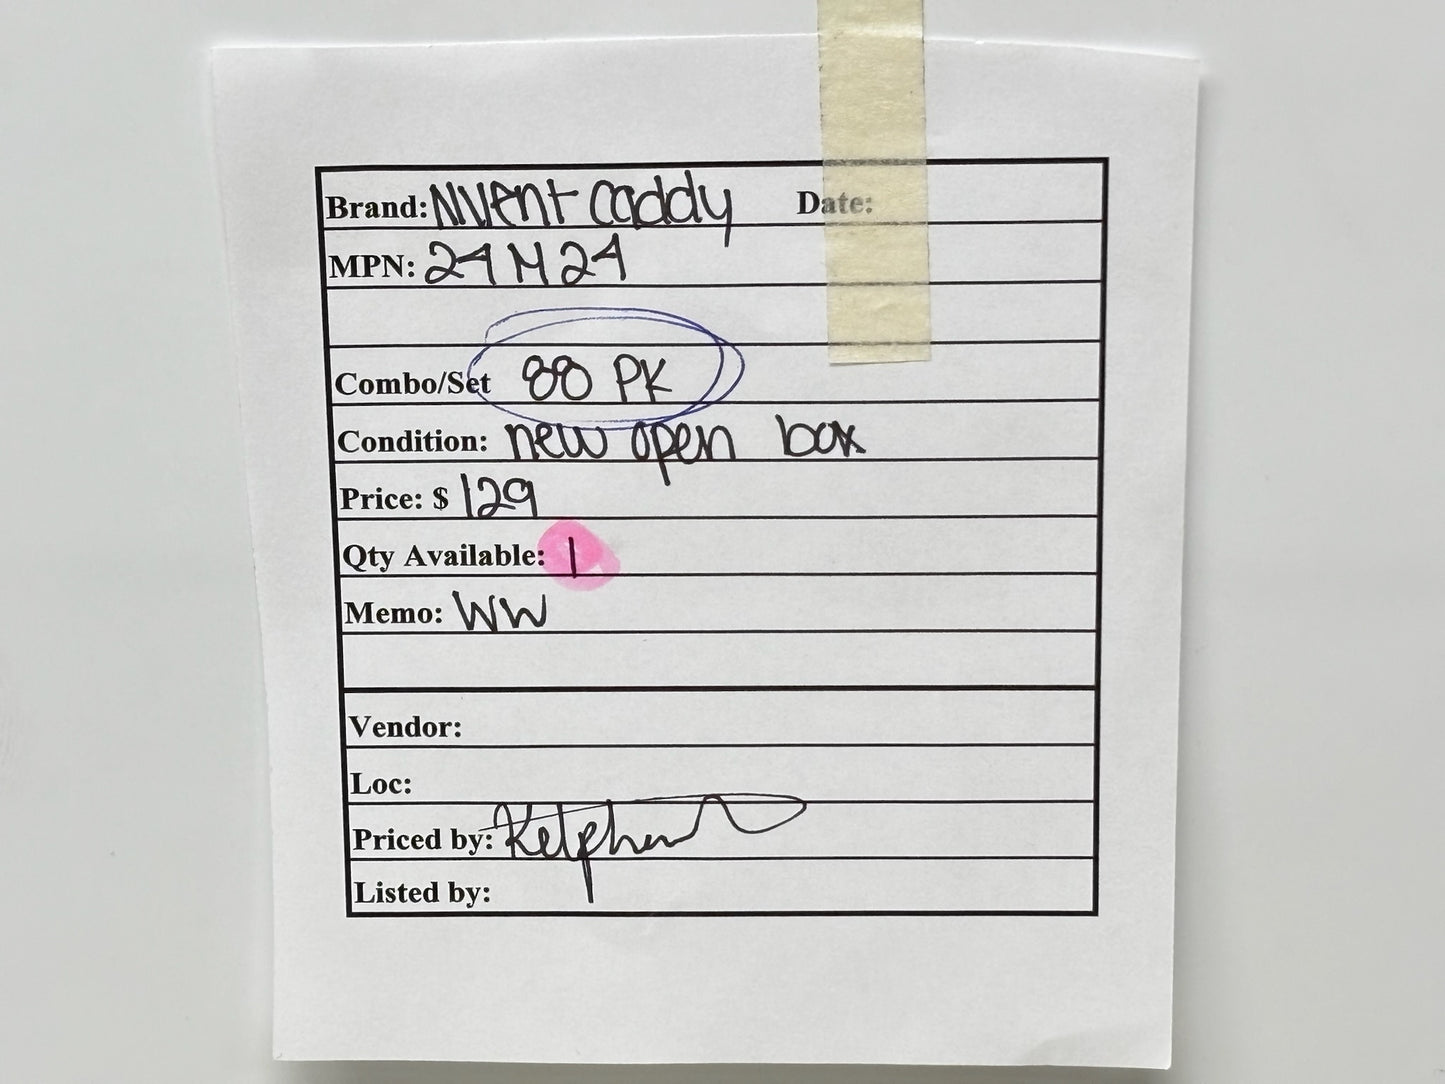 Brand: NVent caddy Date:
MPN: 24M24
Combo/Set 88 PK
Condition: new open box
Price: $ 129
Qty Available: 1
Memo: WW
Vendor:
Loc:
Priced by:
Listed by: